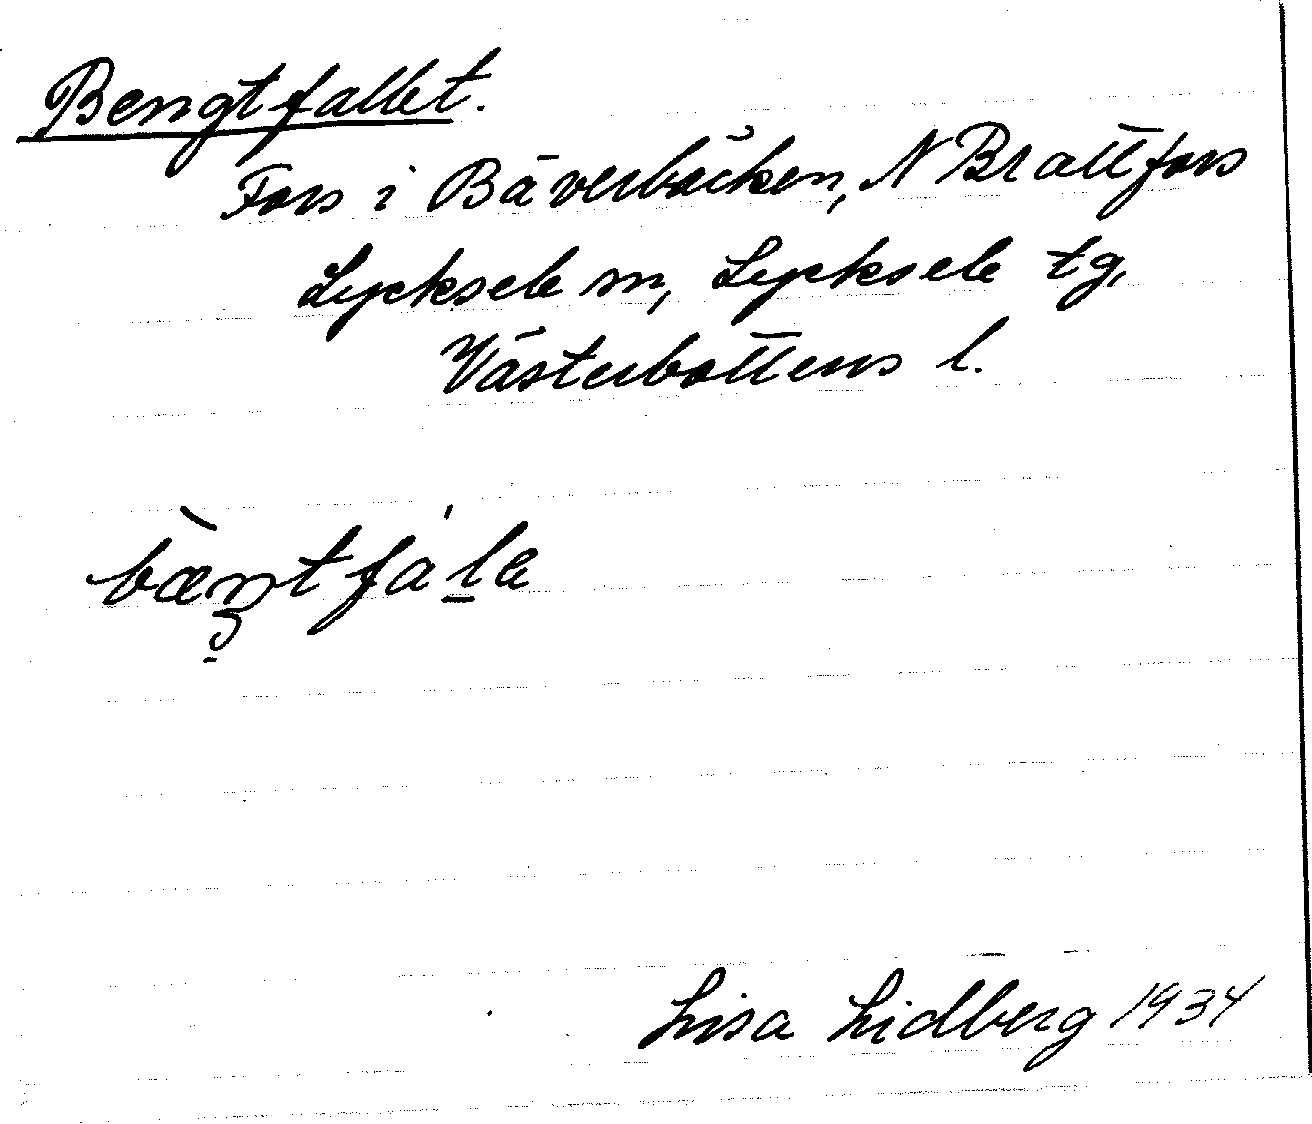 Bengtfallet.
Fors i Bäverbäcken, N Brattfors
Lycksele sn, Lycksele tg,
Västerbottens l.
Lisa Lidberg 1934